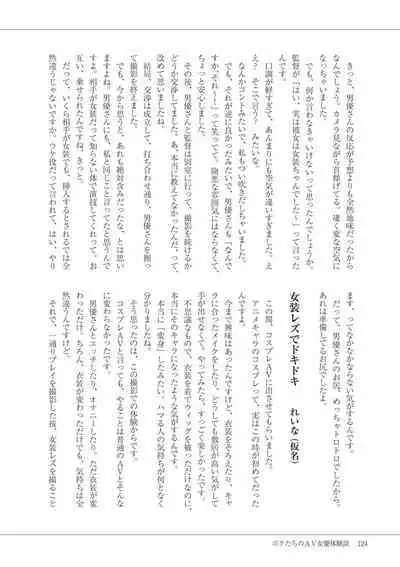 きっと、男優さんの反応が予想よりも全然地味だったから
なんでしょう。カメラ見ながら首傾げてる、凄く変な空気に
なっちゃいました。
でも、何か言わなきゃいけないって思ったんでしょうか、
監督が「はい、実は彼女は女装ちゃんでした〜」って言った
んです。
口調が軽すぎて、あんまりにも空気が違いすぎました。え
え? そこで言う? みたいな。
なんかコントみたいで、私もつい吹きだしちゃいました。
でも、それが逆に良かったみたいで、男優さんも「なんで
すか、それぇ〜!」って笑ってて、険悪な雰囲気にはならなくて、
ちょっと安心しました。
その後、男優さんと監督は別室に行って、撮影を続けるか
どうか交渉してました。あ、本当に教えてなかったんだ、って
改めて思いました。
結局、交渉は成立して、打ち合わせ通り、男優さんを掘っ
て撮影を終えました。
でも、今から思うと、あれも絶対含みだったな、とは思い
ますよね。男優さんにも、私と同じこと言ってたと思うんで
すよ。相手が女装だって知らない体で面接してくれって。お
互い、乗せられたんですね、きっと。
だって、いくら相手が女装でも、挿入するとされるでは全
然違うじゃないですか。ウケ役だって言われて、はい、やり
ます、ってなかなかならない気がするんです。
だって、男優さんのお尻、めっちゃトロトロでしたから。
あれは準備してるお尻でしたよ。
女装レズでドキドキ れいな(仮名)
この間、コスプレAVに出させてもらいました。
アニメキャラのコスプレって、実はこの時が初めてだった
んですよ。
今まで興味はあったんですけど、衣装をそろえたり、キャ
ラに合ったメイクをしたり、どうしても敷居が高い気がして
手が出せなくて。やってみたら、すっごく楽しかったです。
普段の女装のようなもので、衣装を着てウィッグを被っただけなのに、
本当にそのキャラになったような気がするんです。
本当に「変身」したみたい。ハマる人の気持ちが何となく
分かりましたね。
そう思ったのは、この撮影での体験からです。
コスプレAVと言っても、やることは普通のAVとそんな
に変わらなかったです。
男優さんとエッチしたり、オナニーしたり。ただ衣装が変
わっただけ。もちろん、衣装が変わっただけでも、気持ちは全
然違うんですけど。
それで、一通りプレイを撮影した後、女装レズを撮ること
ボクたちのAV女優体験談 124